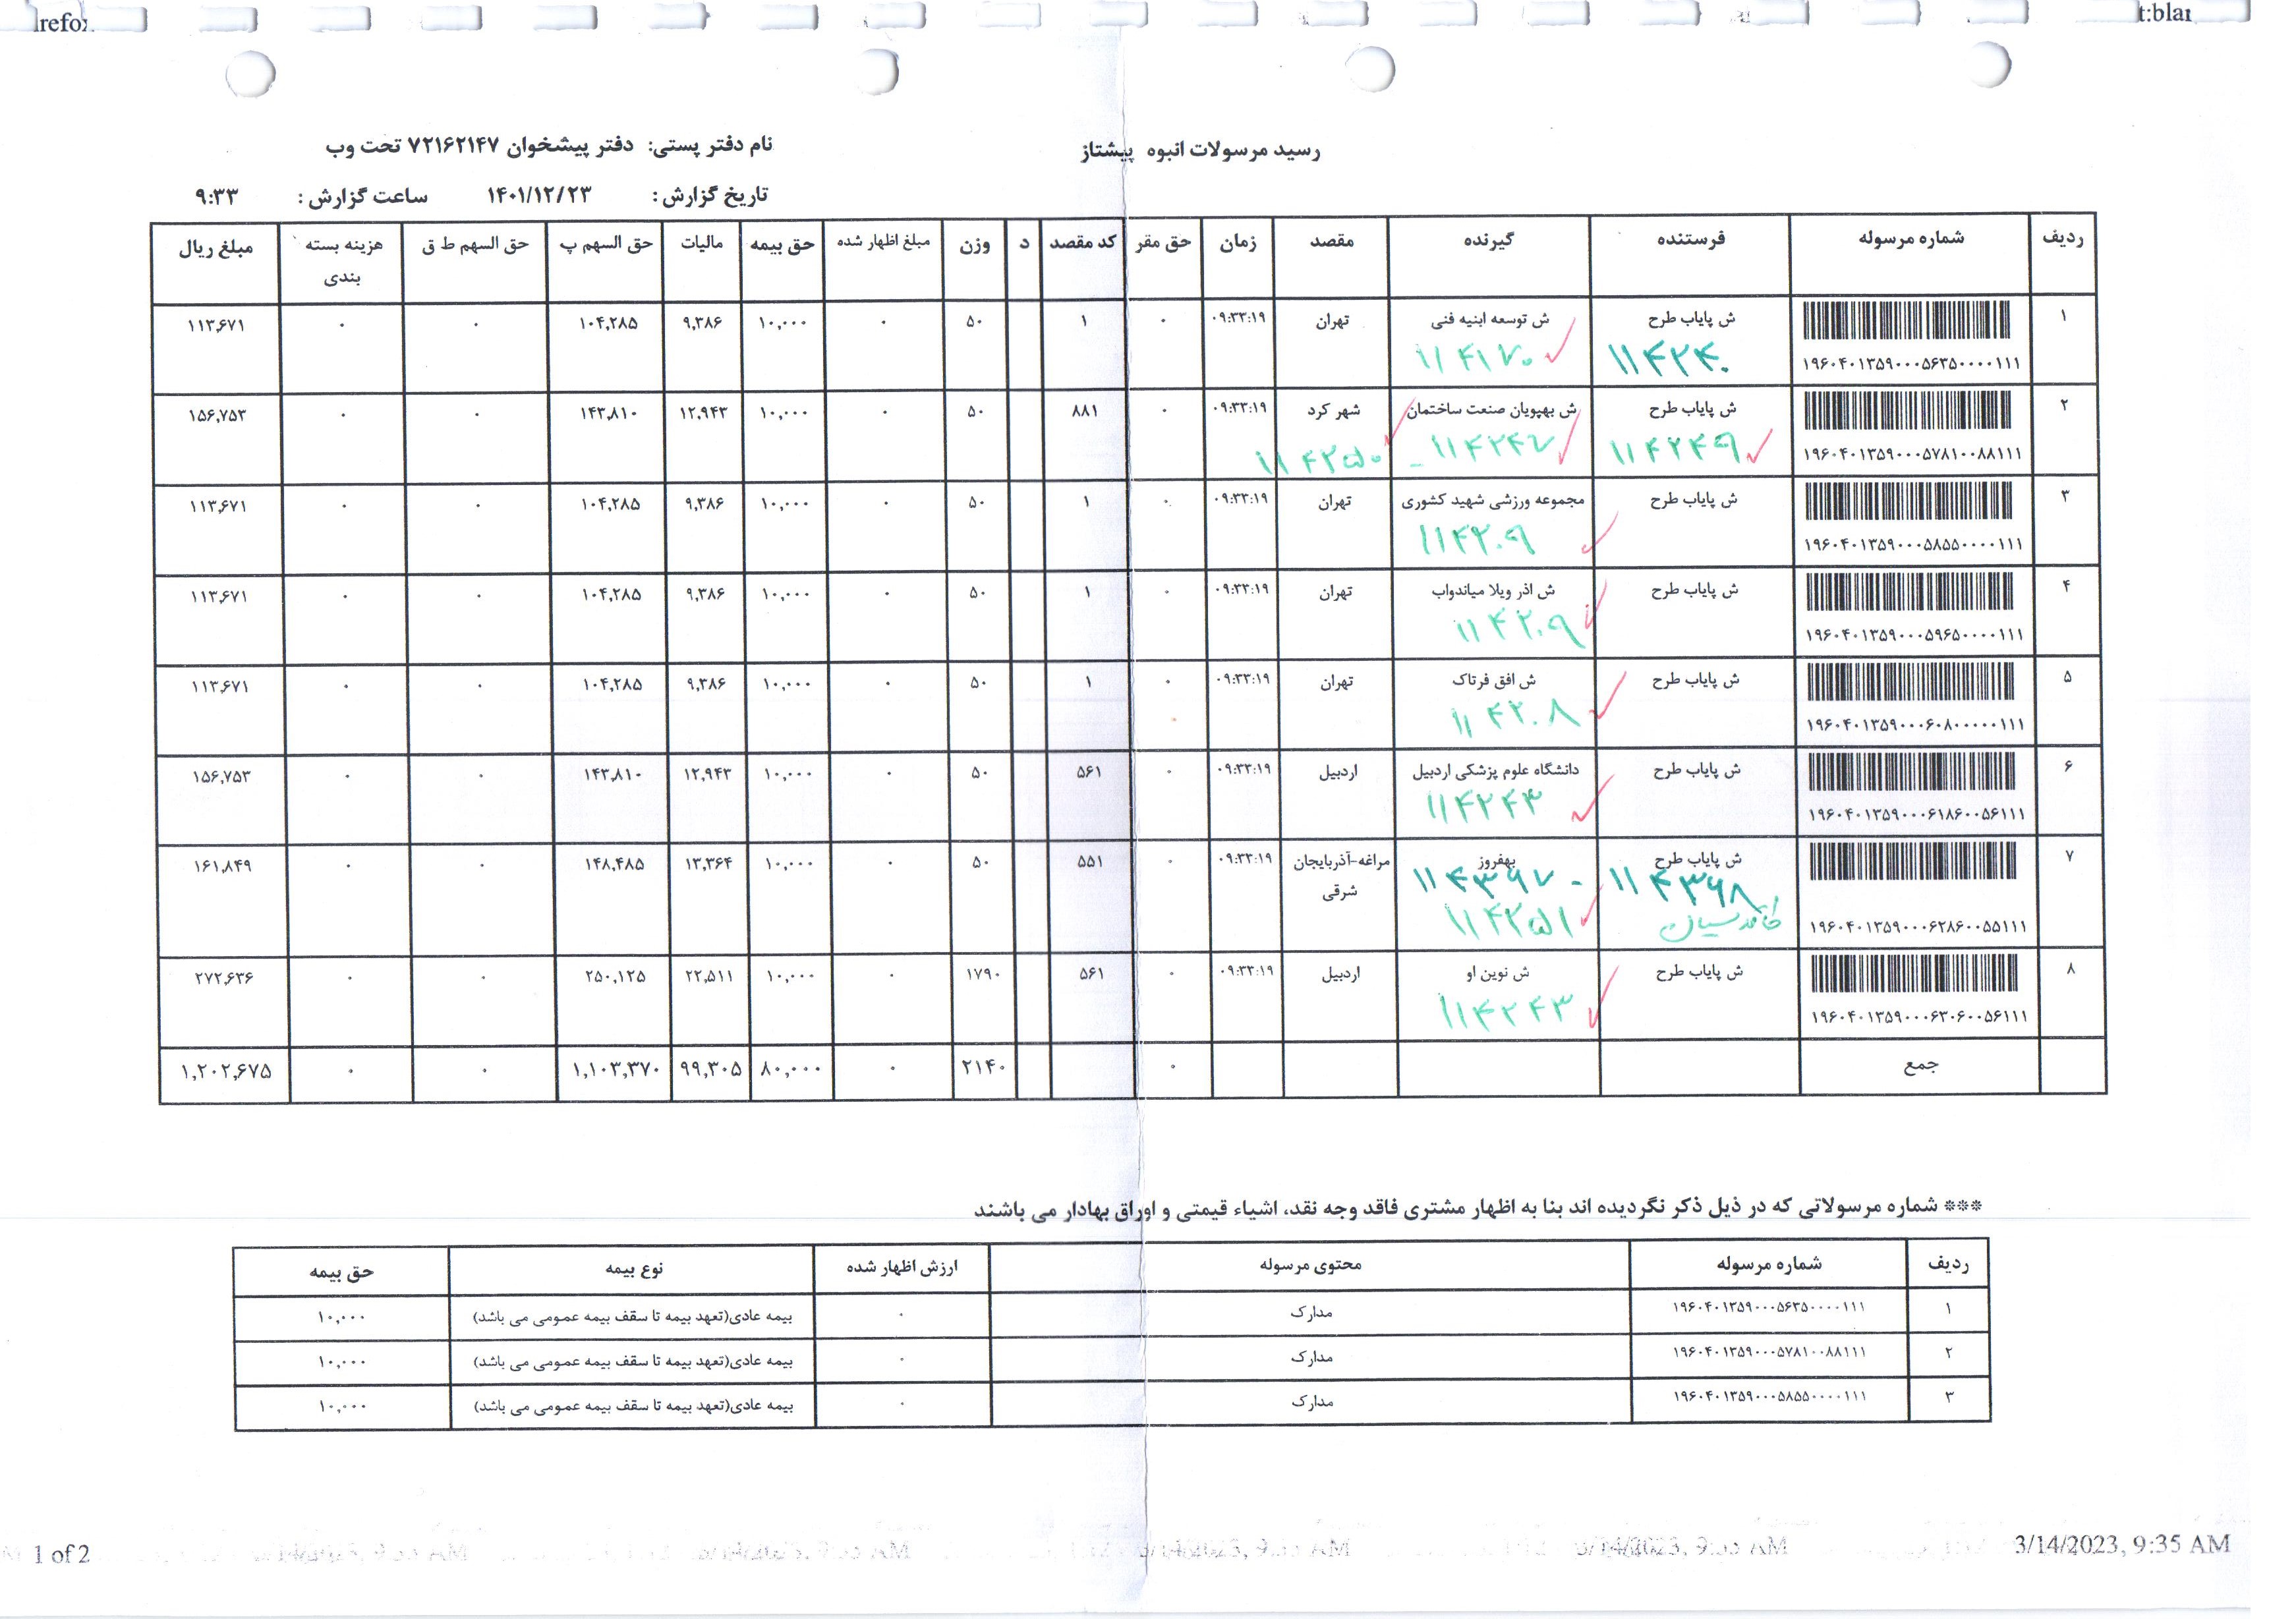 رسید مرسولات انبوه پیشتاز
نام دفتر پستی: دفتر پیشخوان ۷۲۱۶۲۱۴۷ تحت وب
تاریخ گزارش: ۱۴۰۱/۱۲/۲۳ ساعت گزارش: ۹:۳۳
ردیف شماره مرسوله فرستنده گیرنده مقصد زمان حق مقر کد مقصد د وزن مبلغ اظهار شده حق بیمه مالیات حق السهم پ حق السهم ط ق هزینه بسته بندی مبلغ ریال
۱ ش پایاب طرح ش توسعه ابنیه فنی تهران ۰۹:۳۳:۱۹ ۰ ۱ ۵۰ ۰ ۱۰,۰۰۰ ۹,۳۸۶ ۱۰۴,۲۸۵ ۰ ۰ ۱۱۳,۶۷۱
۱۹۶۰۴۰۱۳۵۹۰۰۰۵۶۳۵۰۰۰۰۱۱۱ ۱۱۴۲۴۰ ۱۱۴۱۷۰
۲ ش پایاب طرح ش بهپویان صنعت ساختمان شهر کرد ۰۹:۳۳:۱۹ ۰ ۸۸۱ ۵۰ ۰ ۱۰,۰۰۰ ۱۲,۹۴۳ ۱۴۳,۸۱۰ ۰ ۰ ۱۵۶,۷۵۳
۱۹۶۰۴۰۱۳۵۹۰۰۰۵۷۸۱۰۰۸۸۱۱۱ ۱۱۴۲۴۹ ۱۱۴۲۴۷ - ۱۱۴۲۵۰
۳ ش پایاب طرح مجموعه ورزشی شهید کشوری تهران ۰۹:۳۳:۱۹ ۰ ۱ ۵۰ ۰ ۱۰,۰۰۰ ۹,۳۸۶ ۱۰۴,۲۸۵ ۰ ۰ ۱۱۳,۶۷۱
۱۹۶۰۴۰۱۳۵۹۰۰۰۵۸۵۵۰۰۰۰۱۱۱ ۱۱۴۲۰۹
۴ ش پایاب طرح ش اذر ویلا میاندواب تهران ۰۹:۳۳:۱۹ ۰ ۱ ۵۰ ۰ ۱۰,۰۰۰ ۹,۳۸۶ ۱۰۴,۲۸۵ ۰ ۰ ۱۱۳,۶۷۱
۱۹۶۰۴۰۱۳۵۹۰۰۰۵۹۶۵۰۰۰۰۱۱۱ ۱۱۴۲۰۹
۵ ش پایاب طرح ش افق فرتاک تهران ۰۹:۳۳:۱۹ ۰ ۱ ۵۰ ۰ ۱۰,۰۰۰ ۹,۳۸۶ ۱۰۴,۲۸۵ ۰ ۰ ۱۱۳,۶۷۱
۱۹۶۰۴۰۱۳۵۹۰۰۰۶۰۸۰۰۰۰۰۱۱۱ ۱۱۴۲۰۸
۶ ش پایاب طرح دانشگاه علوم پزشکی اردبیل اردبیل ۰۹:۳۳:۱۹ ۰ ۵۶۱ ۵۰ ۰ ۱۰,۰۰۰ ۱۲,۹۴۳ ۱۴۳,۸۱۰ ۰ ۰ ۱۵۶,۷۵۳
۱۹۶۰۴۰۱۳۵۹۰۰۰۶۱۸۶۰۰۵۶۱۱۱ ۱۱۴۲۴۳
۷ ش پایاب طرح بهفروز مراغه-آذربایجان شرقی ۰۹:۳۳:۱۹ ۰ ۵۵۱ ۵۰ ۰ ۱۰,۰۰۰ ۱۳,۳۶۴ ۱۴۸,۴۸۵ ۰ ۰ ۱۶۱,۸۴۹
۱۱۴۳۶۸ - ۱۱۴۳۶۷
۱۹۶۰۴۰۱۳۵۹۰۰۰۶۲۸۶۰۰۵۵۱۱۱ ۱۱۴۲۵۱
۸ ش پایاب طرح ش نوین او اردبیل ۰۹:۳۳:۱۹ ۰ ۵۶۱ ۱۷۹۰ ۰ ۱۰,۰۰۰ ۲۲,۵۱۱ ۲۵۰,۱۲۵ ۰ ۰ ۲۷۲,۶۳۶
۱۹۶۰۴۰۱۳۵۹۰۰۰۶۳۰۶۰۰۵۶۱۱۱ ۱۱۴۲۴۳
جمع ۰ ۲۱۴۰ ۰ ۸۰,۰۰۰ ۹۹,۳۰۵ ۱,۱۰۳,۳۷۰ ۰ ۰ ۱,۲۰۲,۶۷۵
*** شماره مرسولاتی که در ذیل ذکر نگردیده اند بنا به اظهار مشتری فاقد وجه نقد، اشیاء قیمتی و اوراق بهادار می باشند
ردیف شماره مرسوله محتوی مرسوله ارزش اظهار شده نوع بیمه حق بیمه
۱ ۱۹۶۰۴۰۱۳۵۹۰۰۰۵۶۳۵۰۰۰۰۱۱۱ مدارک ۰ بیمه عادی(تعهد بیمه تا سقف بیمه عمومی می باشد) ۱۰,۰۰۰
۲ ۱۹۶۰۴۰۱۳۵۹۰۰۰۵۷۸۱۰۰۸۸۱۱۱ مدارک ۰ بیمه عادی(تعهد بیمه تا سقف بیمه عمومی می باشد) ۱۰,۰۰۰
۳ ۱۹۶۰۴۰۱۳۵۹۰۰۰۵۸۵۵۰۰۰۰۱۱۱ مدارک ۰ بیمه عادی(تعهد بیمه تا سقف بیمه عمومی می باشد) ۱۰,۰۰۰
1 of 2
3/14/2023, 9:35 AM